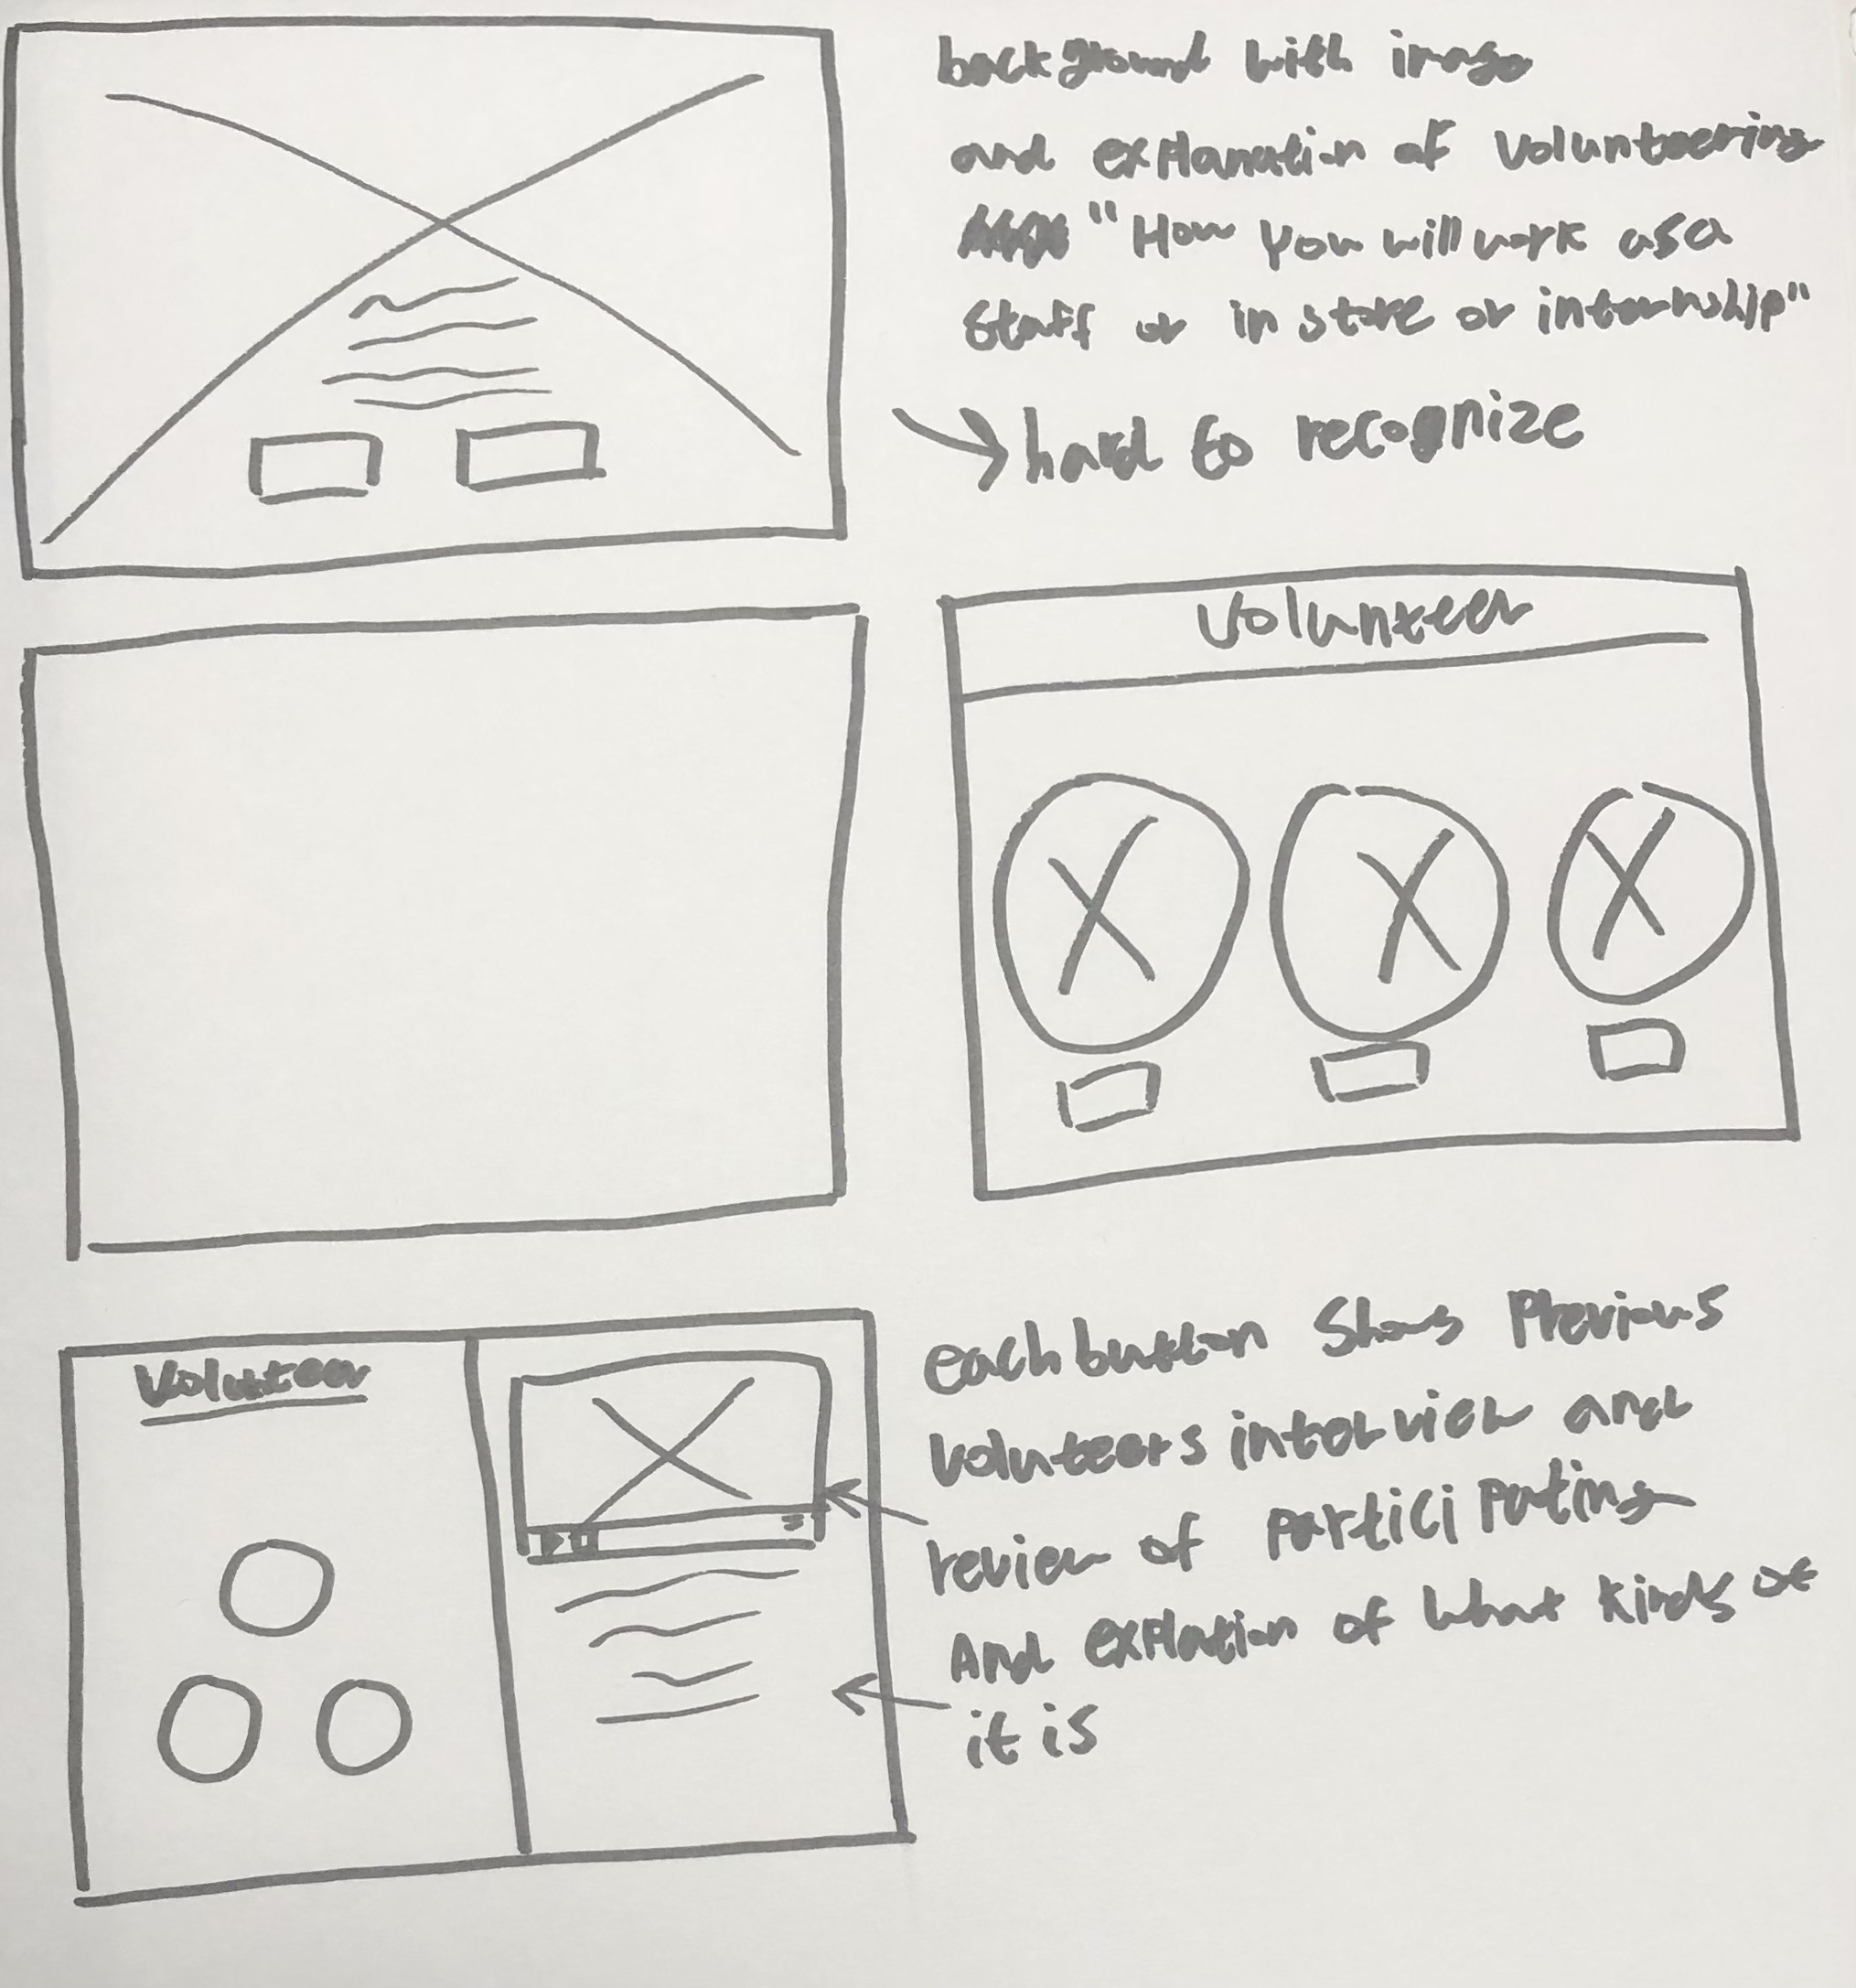 background with image
and explanation of volunteering
"How you will work as a
staff or in store or internship"
hard to recognize
Volunteer
Volunteer
each button shows previous
volunteers interview and
review of participating
And explation of what kinds of
it is